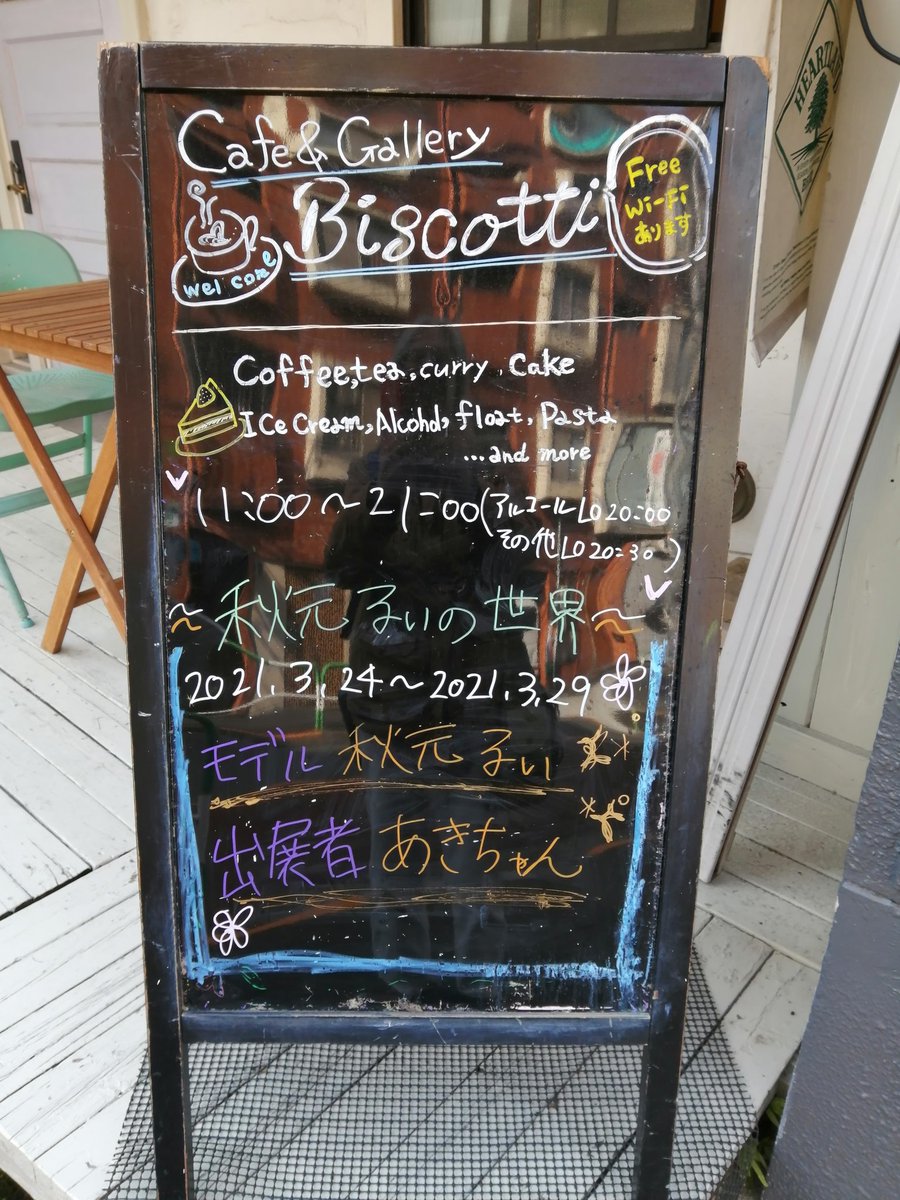 Cafe & Gallery
Biscotti
Free
Wi-Fi
あります
welcome
Coffee, tea, curry, cake
Ice cream, Alcohol, float, Pasta
...and more
11:00〜21:00(アルコールLO 20:00
その他LO 20:30)
〜秋元るいの世界〜
2021.3.24〜2021.3.29
モデル 秋元るい
出展者 あきちゃん
HEARTLAND